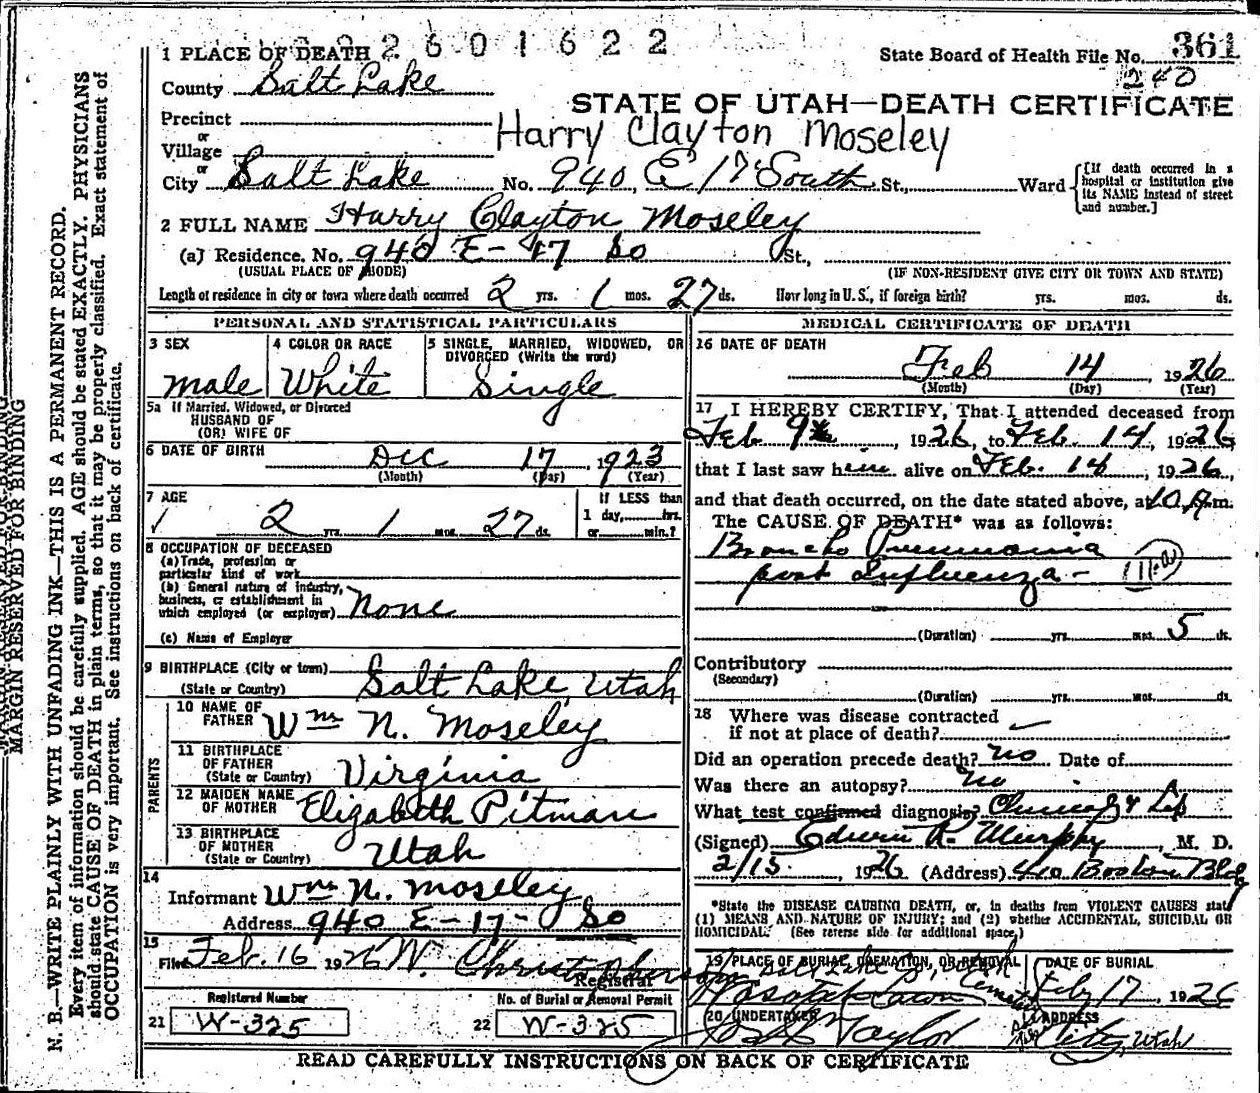 2601622
1 PLACE OF DEATH
State Board of Health File No. 361
240
County Salt Lake
STATE OF UTAH—DEATH CERTIFICATE
Precinct
or
Harry Clayton Moseley
Village
or
City Salt Lake No. 940, E 17 South St., Ward
[If death occurred in a hospital or institution give its NAME instead of street and number.]
2 FULL NAME Harry Clayton Moseley
(a) Residence. No. 940 E - 17 So St.,
(USUAL PLACE OF ABODE) (IF NON-RESIDENT GIVE CITY OR TOWN AND STATE)
Length of residence in city or town where death occurred 2 yrs. 1 mos. 27 ds. How long in U. S., if foreign birth? yrs. mos. ds.
PERSONAL AND STATISTICAL PARTICULARS
3 SEX
Male
4 COLOR OR RACE
White
5 SINGLE, MARRIED, WIDOWED, OR DIVORCED (Write the word)
Single
5a If Married, Widowed, or Divorced
HUSBAND OF
(OR) WIFE OF
6 DATE OF BIRTH Dec 17, 1923
(Month) (Day) (Year)
7 AGE
2 yrs. 1 mos. 27 ds.
If LESS than
1 day, hrs.
or min.?
8 OCCUPATION OF DECEASED
(a) Trade, profession or
particular kind of work
(b) General nature of industry,
business, or establishment in
which employed (or employer) None
(c) Name of Employer
9 BIRTHPLACE (City or town)
(State or Country) Salt Lake, Utah
PARENTS
10 NAME OF
FATHER Wm N. Moseley
11 BIRTHPLACE
OF FATHER
(State or Country) Virginia
12 MAIDEN NAME
OF MOTHER Elizabeth Pitman
13 BIRTHPLACE
OF MOTHER
(State or Country) Utah
14
Informant Wm N. Moseley
Address 940 E-17- So
15
Filed Feb. 16 1926 W. Christopherson
Registrar
Registered Number
21 W-325
No. of Burial or Removal Permit
22 W-325
MEDICAL CERTIFICATE OF DEATH
16 DATE OF DEATH
Feb 14, 1926
(Month) (Day) (Year)
17 I HEREBY CERTIFY, That I attended deceased from
Feb 9th, 1926, to Feb. 14, 1926
that I last saw him alive on Feb. 14, 1926,
and that death occurred, on the date stated above, at 10 A.m.
The CAUSE OF DEATH* was as follows:
Broncho Pneumonia
post Influenza -
(Duration) yrs. mos. 5 ds.
Contributory
(Secondary)
(Duration) yrs. mos. ds.
18 Where was disease contracted
if not at place of death?
Did an operation precede death? no Date of
Was there an autopsy? no
What test confirmed diagnosis? Clinical &
(Signed) Edwin R. Murphy, M. D.
2/15, 1926 (Address) 410 Boston Bldg
*State the DISEASE CAUSING DEATH, or, in deaths from VIOLENT CAUSES state
(1) MEANS AND NATURE OF INJURY; and (2) whether ACCIDENTAL, SUICIDAL OR
HOMICIDAL. (See reverse side for additional space.)
19 PLACE OF BURIAL, CREMATION, OR REMOVAL
Salt Lake City, Utah
Wasatch Lawn Cemetery
DATE OF BURIAL
Feby 17, 1926
20 UNDERTAKER
Taylor
ADDRESS
City, Utah
READ CAREFULLY INSTRUCTIONS ON BACK OF CERTIFICATE
MARGIN RESERVED FOR BINDING
N. B.—WRITE PLAINLY WITH UNFADING INK—THIS IS A PERMANENT RECORD.
Every item of information should be carefully supplied. AGE should be stated EXACTLY. PHYSICIANS
should state CAUSE OF DEATH in plain terms, so that it may be properly classified. Exact statement of
OCCUPATION is very important. See instructions on back of certificate.